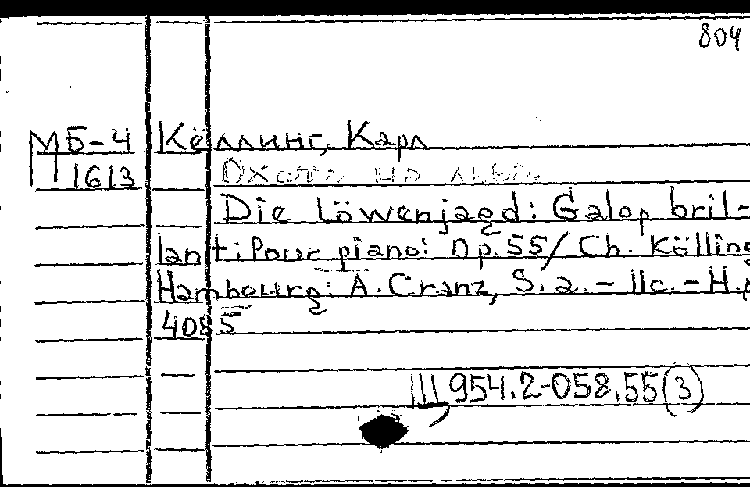 804
МБ-4 Кёллинг, Карл
1613 Охота на льва
Die Löwenjagd: Galop bril=
lant: Pour piano: Op.55/ Ch. Kölling
Hambourg: A. Cranz, S.a. - 11c. - Н.д
4085
Ш 954.2-058.55 (3)